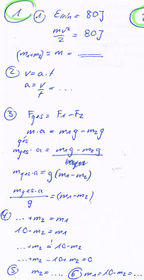 1 1) Ekin = 80J
mv²/2 = 80J
(m₁+m₂) = m = ___
2) v = a·t
a = v/t = ....
3) Fges = F1 - F2
m·a = m₁g - m₂g
mges·a = m₁g - m₂g
mges·a = g(m₁-m₂)
mges·a/g = (m₁-m₂)
4) ... + m₂ = m₁
10 - m₂ = m₁
... + m₂ = 10 - m₂
... + m₂ - 10 + m₂ = 0
5) m₂ = .... 6) m₁ = 10 - m₂ = ...